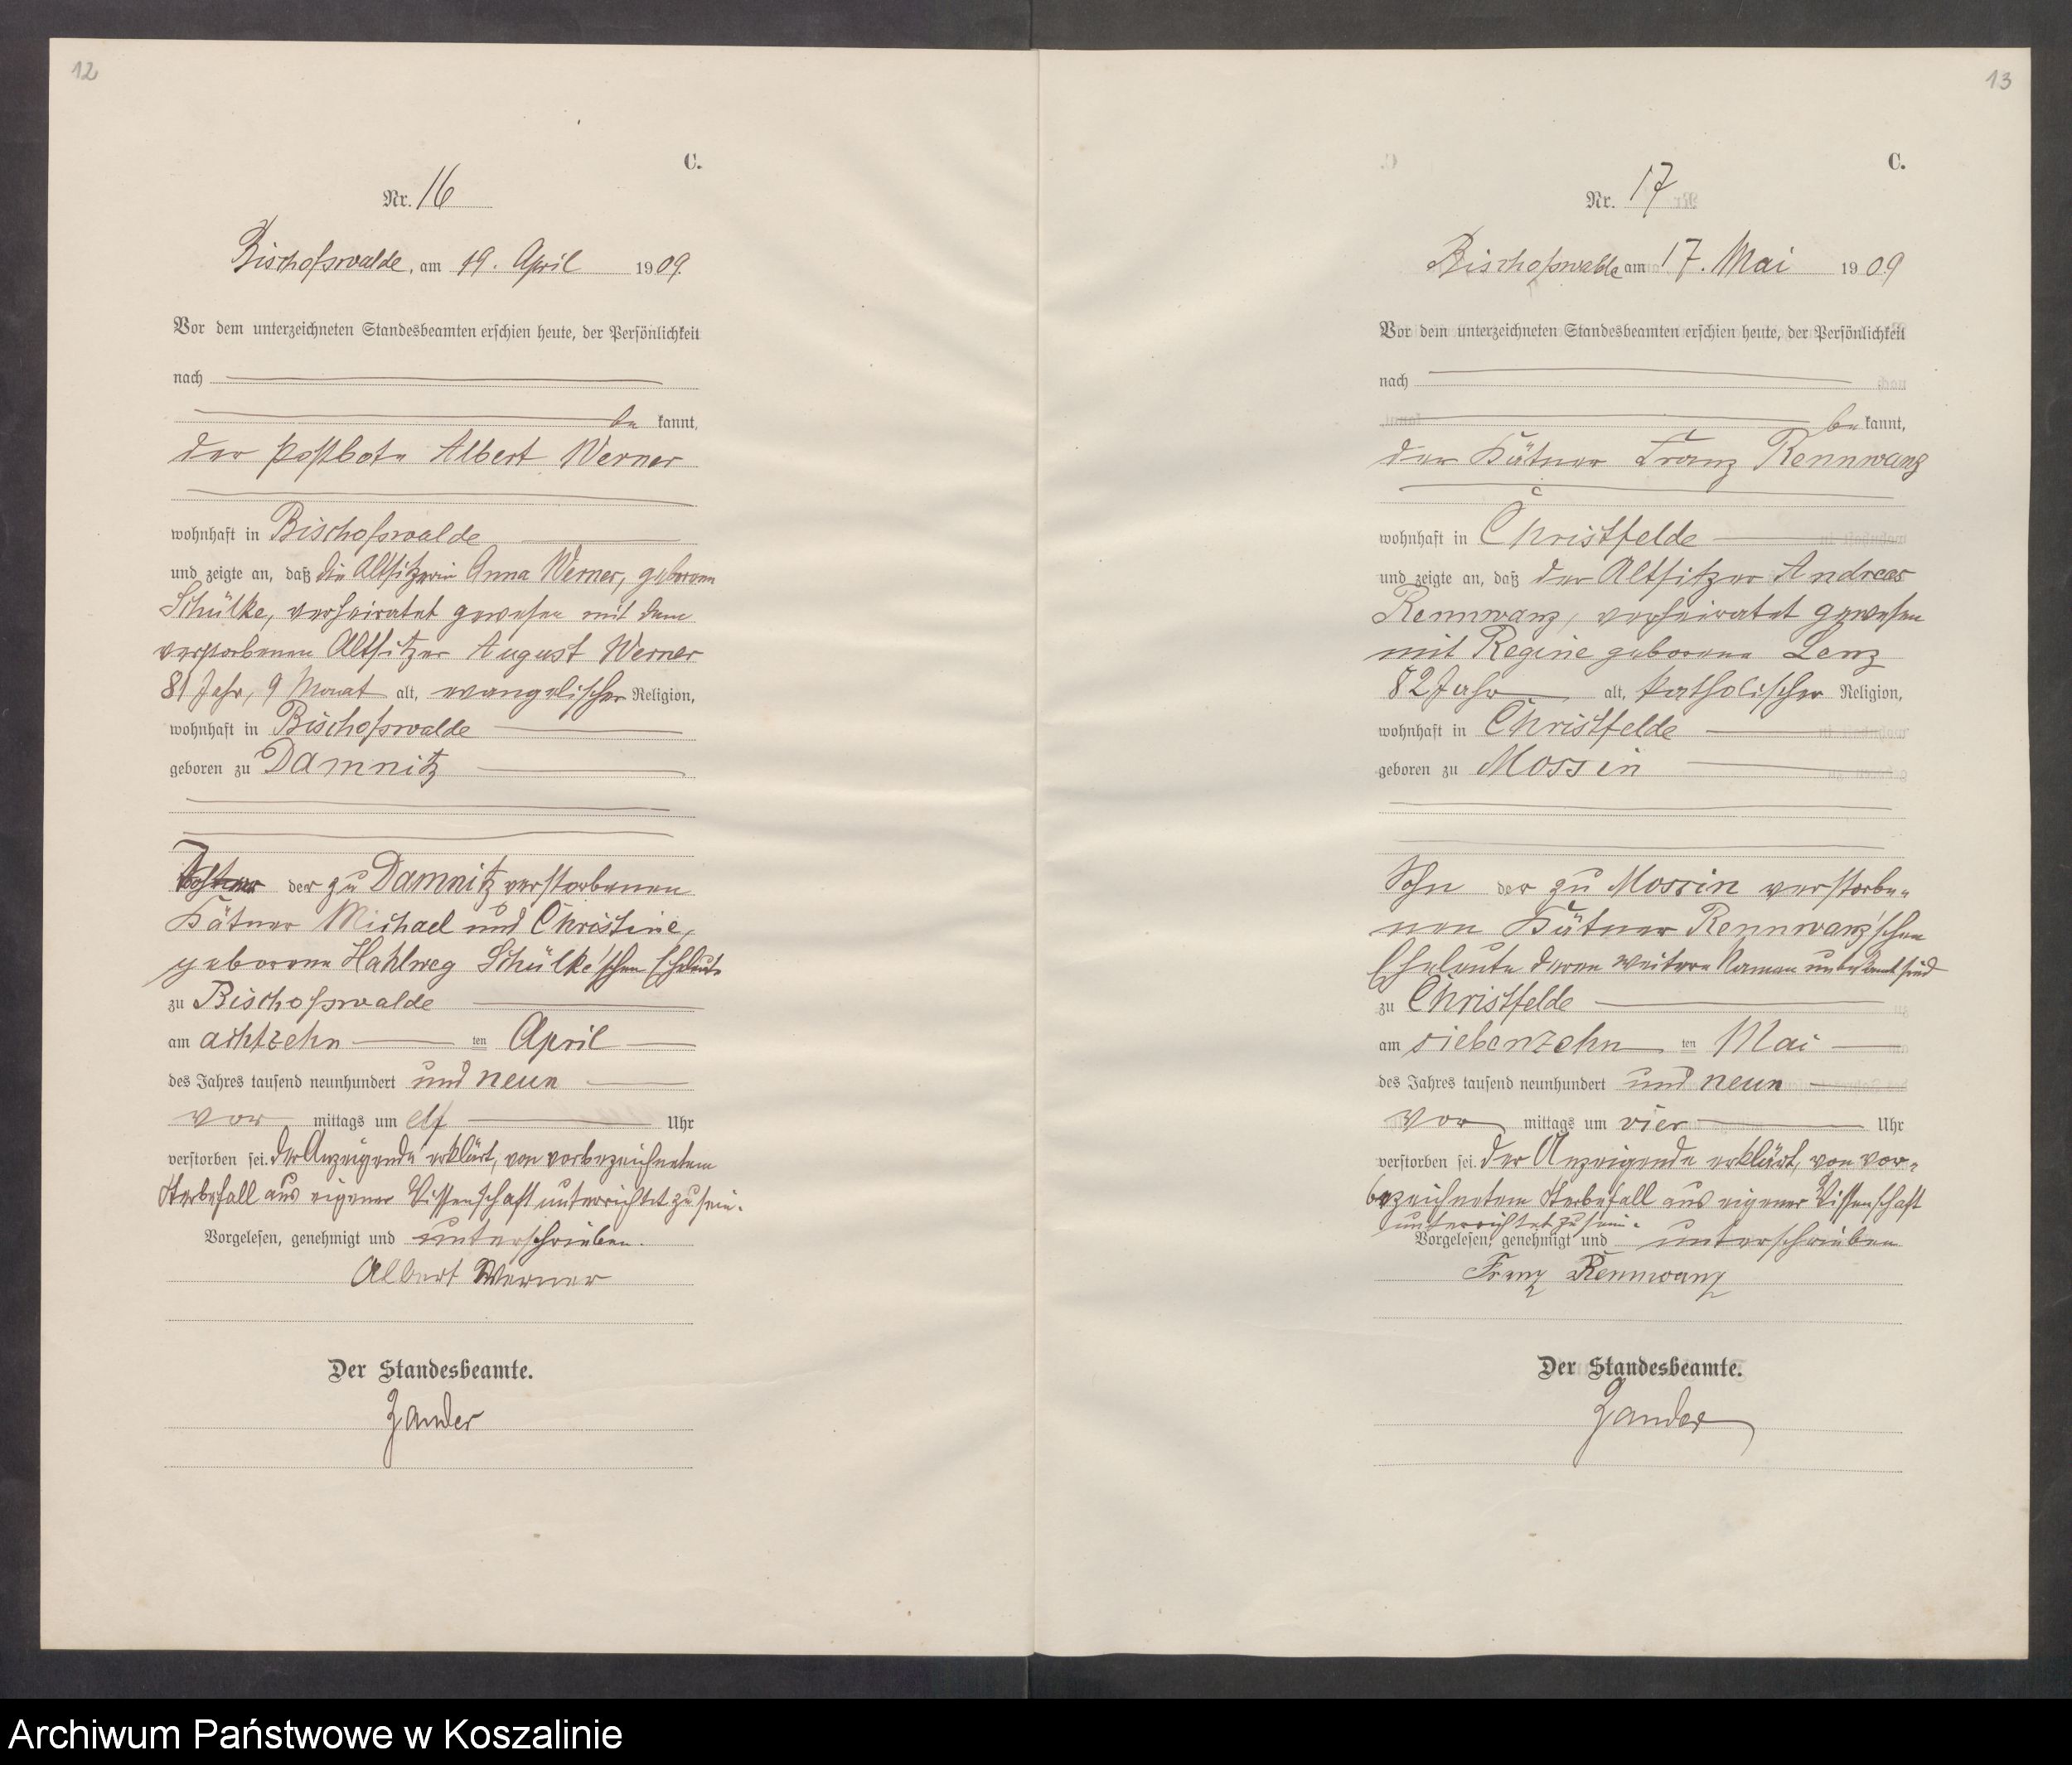 12
C.
Nr. 16
Bischofswalde, am 19. April 1909.
Vor dem unterzeichneten Standesbeamten erschien heute, der Persönlichkeit
nach
be kannt,
der Postbote Albert Werner
wohnhaft in Bischofswalde
und zeigte an, daß die Altsitzerin Anna Werner, geborene
Schülke, verheiratet gewesen mit dem
verstorbenen Altsitzer August Werner
81 Jahr, 9 Monat alt, evangelischer Religion,
wohnhaft in Bischofswalde
geboren zu Damnitz
Tochter der zu Damnitz verstorbenen
Kätner Michael und Christine,
geborene Hahlweg Schülke'schen Eheleute
zu Bischofswalde
am achtzehn ten April
des Jahres tausend neunhundert und neun
vor mittags um elf Uhr
verstorben sei. Der Anzeigende erklärt, von vorbezeichnetem
Sterbefall aus eigener Wissenschaft unterrichtet zu sein.
Vorgelesen, genehmigt und unterschrieben.
Albert Werner
Der Standesbeamte.
Zander
13
C.
Nr. 17
Bischofswalde am 17. Mai 1909
Vor dem unterzeichneten Standesbeamten erschien heute, der Persönlichkeit
nach
be kannt,
der Kätner Franz Rennwanz
wohnhaft in Christfelde
und zeigte an, daß der Altsitzer Andreas
Rennwanz, verheiratet gewesen
mit Regine geborene Lenz
82 Jahr alt, katholischer Religion,
wohnhaft in Christfelde
geboren zu Mossin
Sohn der zu Mossin verstorbe-
nen Kätner Rennwanz'schen
Eheleute deren weitere Namen unbekannt sind
zu Christfelde
am siebenzehn ten Mai
des Jahres tausend neunhundert und neun
vor mittags um vier Uhr
verstorben sei. Der Anzeigende erklärt, von vor-
bezeichnetem Sterbefall aus eigener Wissenschaft
unterrichtet zu sein.
Vorgelesen, genehmigt und unterschrieben
Franz Rennwanz
Der Standesbeamte.
Zander
Archiwum Państwowe w Koszalinie